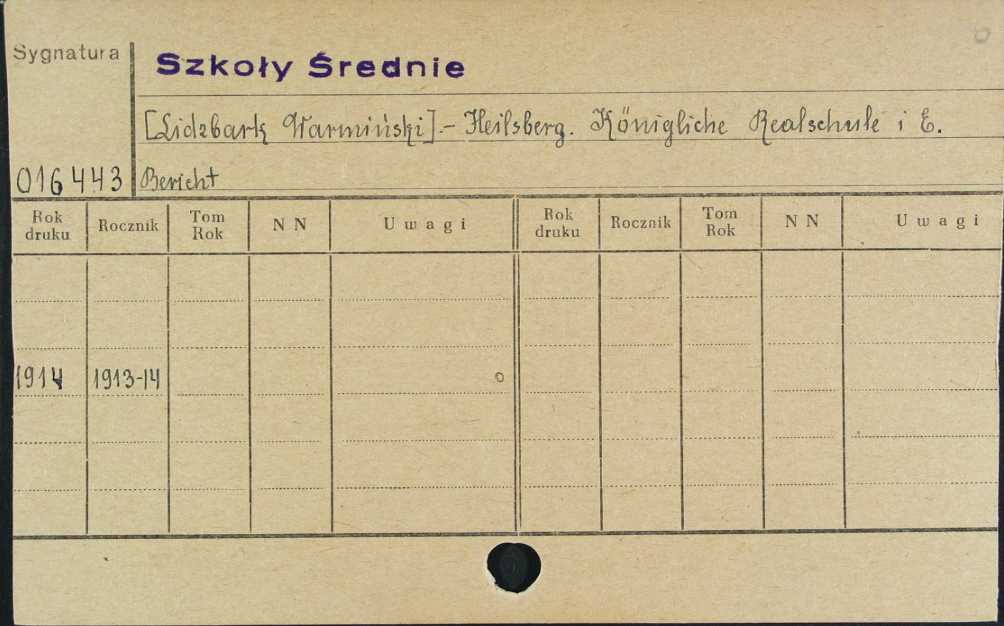 Sygnatura
Szkoły Średnie
[Lidzbark Warmiński].- Heilsberg. Königliche Realschule i E.
016443 Bericht
Rok druku Rocznik Tom Rok N N Uwagi Rok druku Rocznik Tom Rok N N Uwagi
1914 1913-14